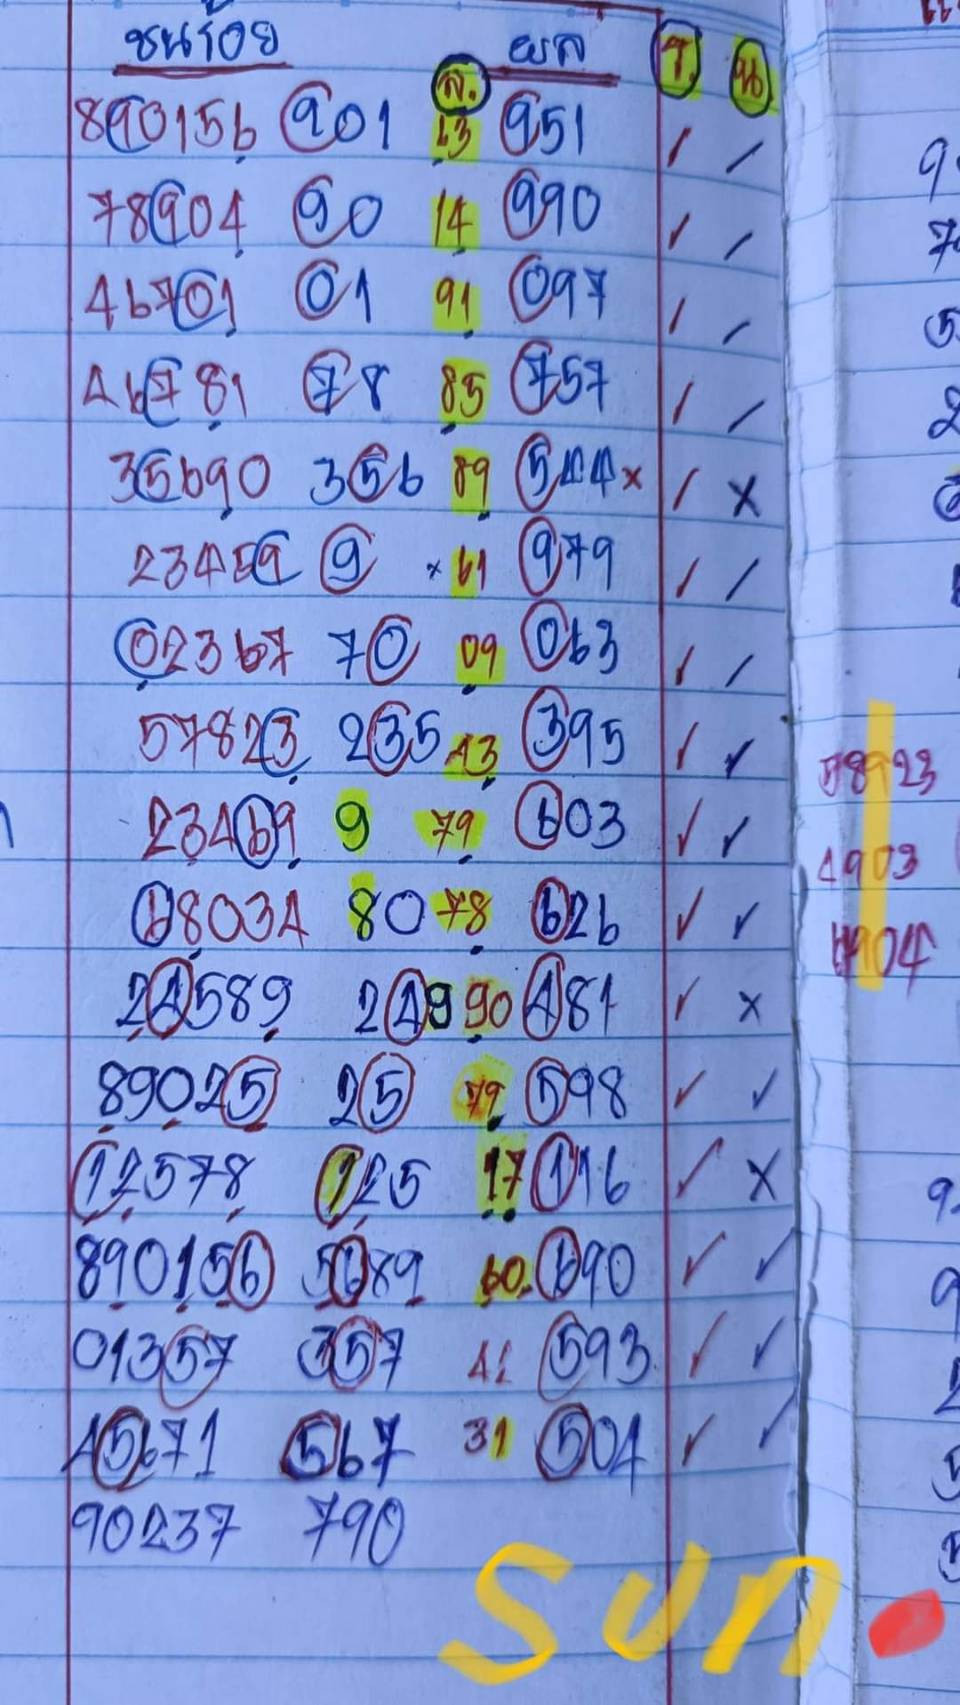 ชนร้อย ผล ท. น
ล.
890156 901 63 951 / /
78904 90 14 990 / /
46701 01 91 097 / /
46781 78 85 757 / /
35690 356 89 544 x / x
23459 9 x 61 979 / /
02367 70 09 063 / /
57823 235 43 395 ✓ ✓
23469 9 79 603 ✓ ✓
68034 80 78 626 ✓ ✓
24589 249 90 481 ✓ x
89025 25 79 598 ✓ ✓
12578 125 17 116 ✓ x
890156 5689 60 690 ✓ ✓
01357 357 593 ✓ ✓
45671 567 31 504 ✓ ✓
90237 790
รบก
58923
4903